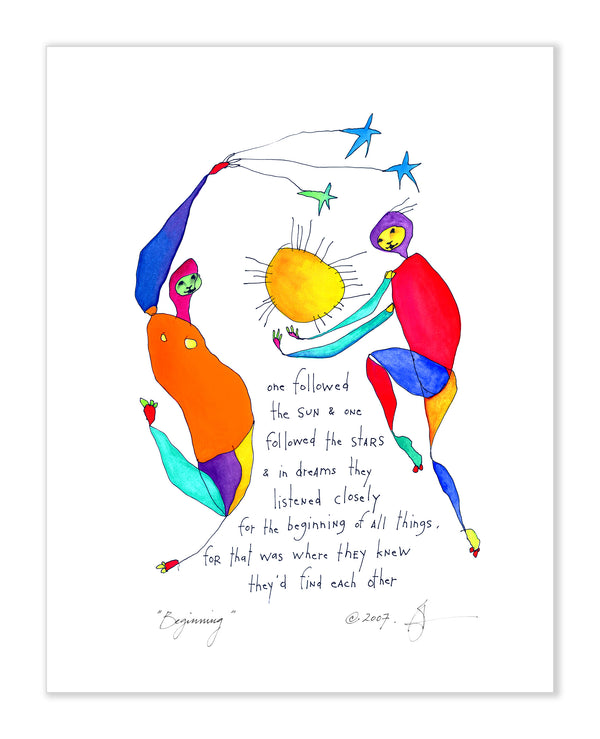 one followed
the SUN & one
followed the STARS
& in dreams they
listened closely
for the beginning of all things,
for that was where they knew
they'd find each other
"Beginning" ©.2007.